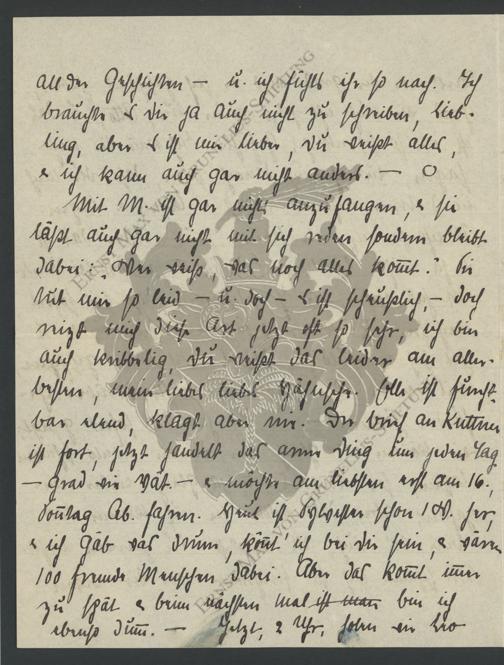 all der Geschichten — u. ich fühls ihr so nach. Ich
brauchte es dir ja auch nicht zu schreiben, Lieb-
ling, aber es ist mir lieber, du weißt alles,
& ich kann auch gar nicht anders. — O
Mit M. ist gar nichts anzufangen, & sie
läßt auch gar nicht mit sich reden sondern bleibt
dabei: "Wer weiß, was noch alles kom̅t." Sie
tut mir so leid — u. doch — es ist scheußlich, — doch
reizt mich diese Art jetzt oft so sehr, ich bin
auch kribbelig, du weißt das leider am aller-
besten, mein liebes liebes Hähnsche. Olle ist furcht-
bar elend, klagt aber nie. Der Brief an Kuttner
ist fort, jetzt handelt das arme Ding um jeden Tag
— grad wie Vat. — & möchte am liebsten erst am 16.,
Son̅tag Ab. fahren. Heut ist Sylvester schon 1 W. her,
& ich gäb was drum, kön̅t ich bei dir sein, & wären
100 fremde Menschen dabei. Aber das kom̅t im̅er
zu spät & beim nächsten Mal ist man bin ich
ebenso dum̅. — Jetzt, 2 Uhr, holen wir